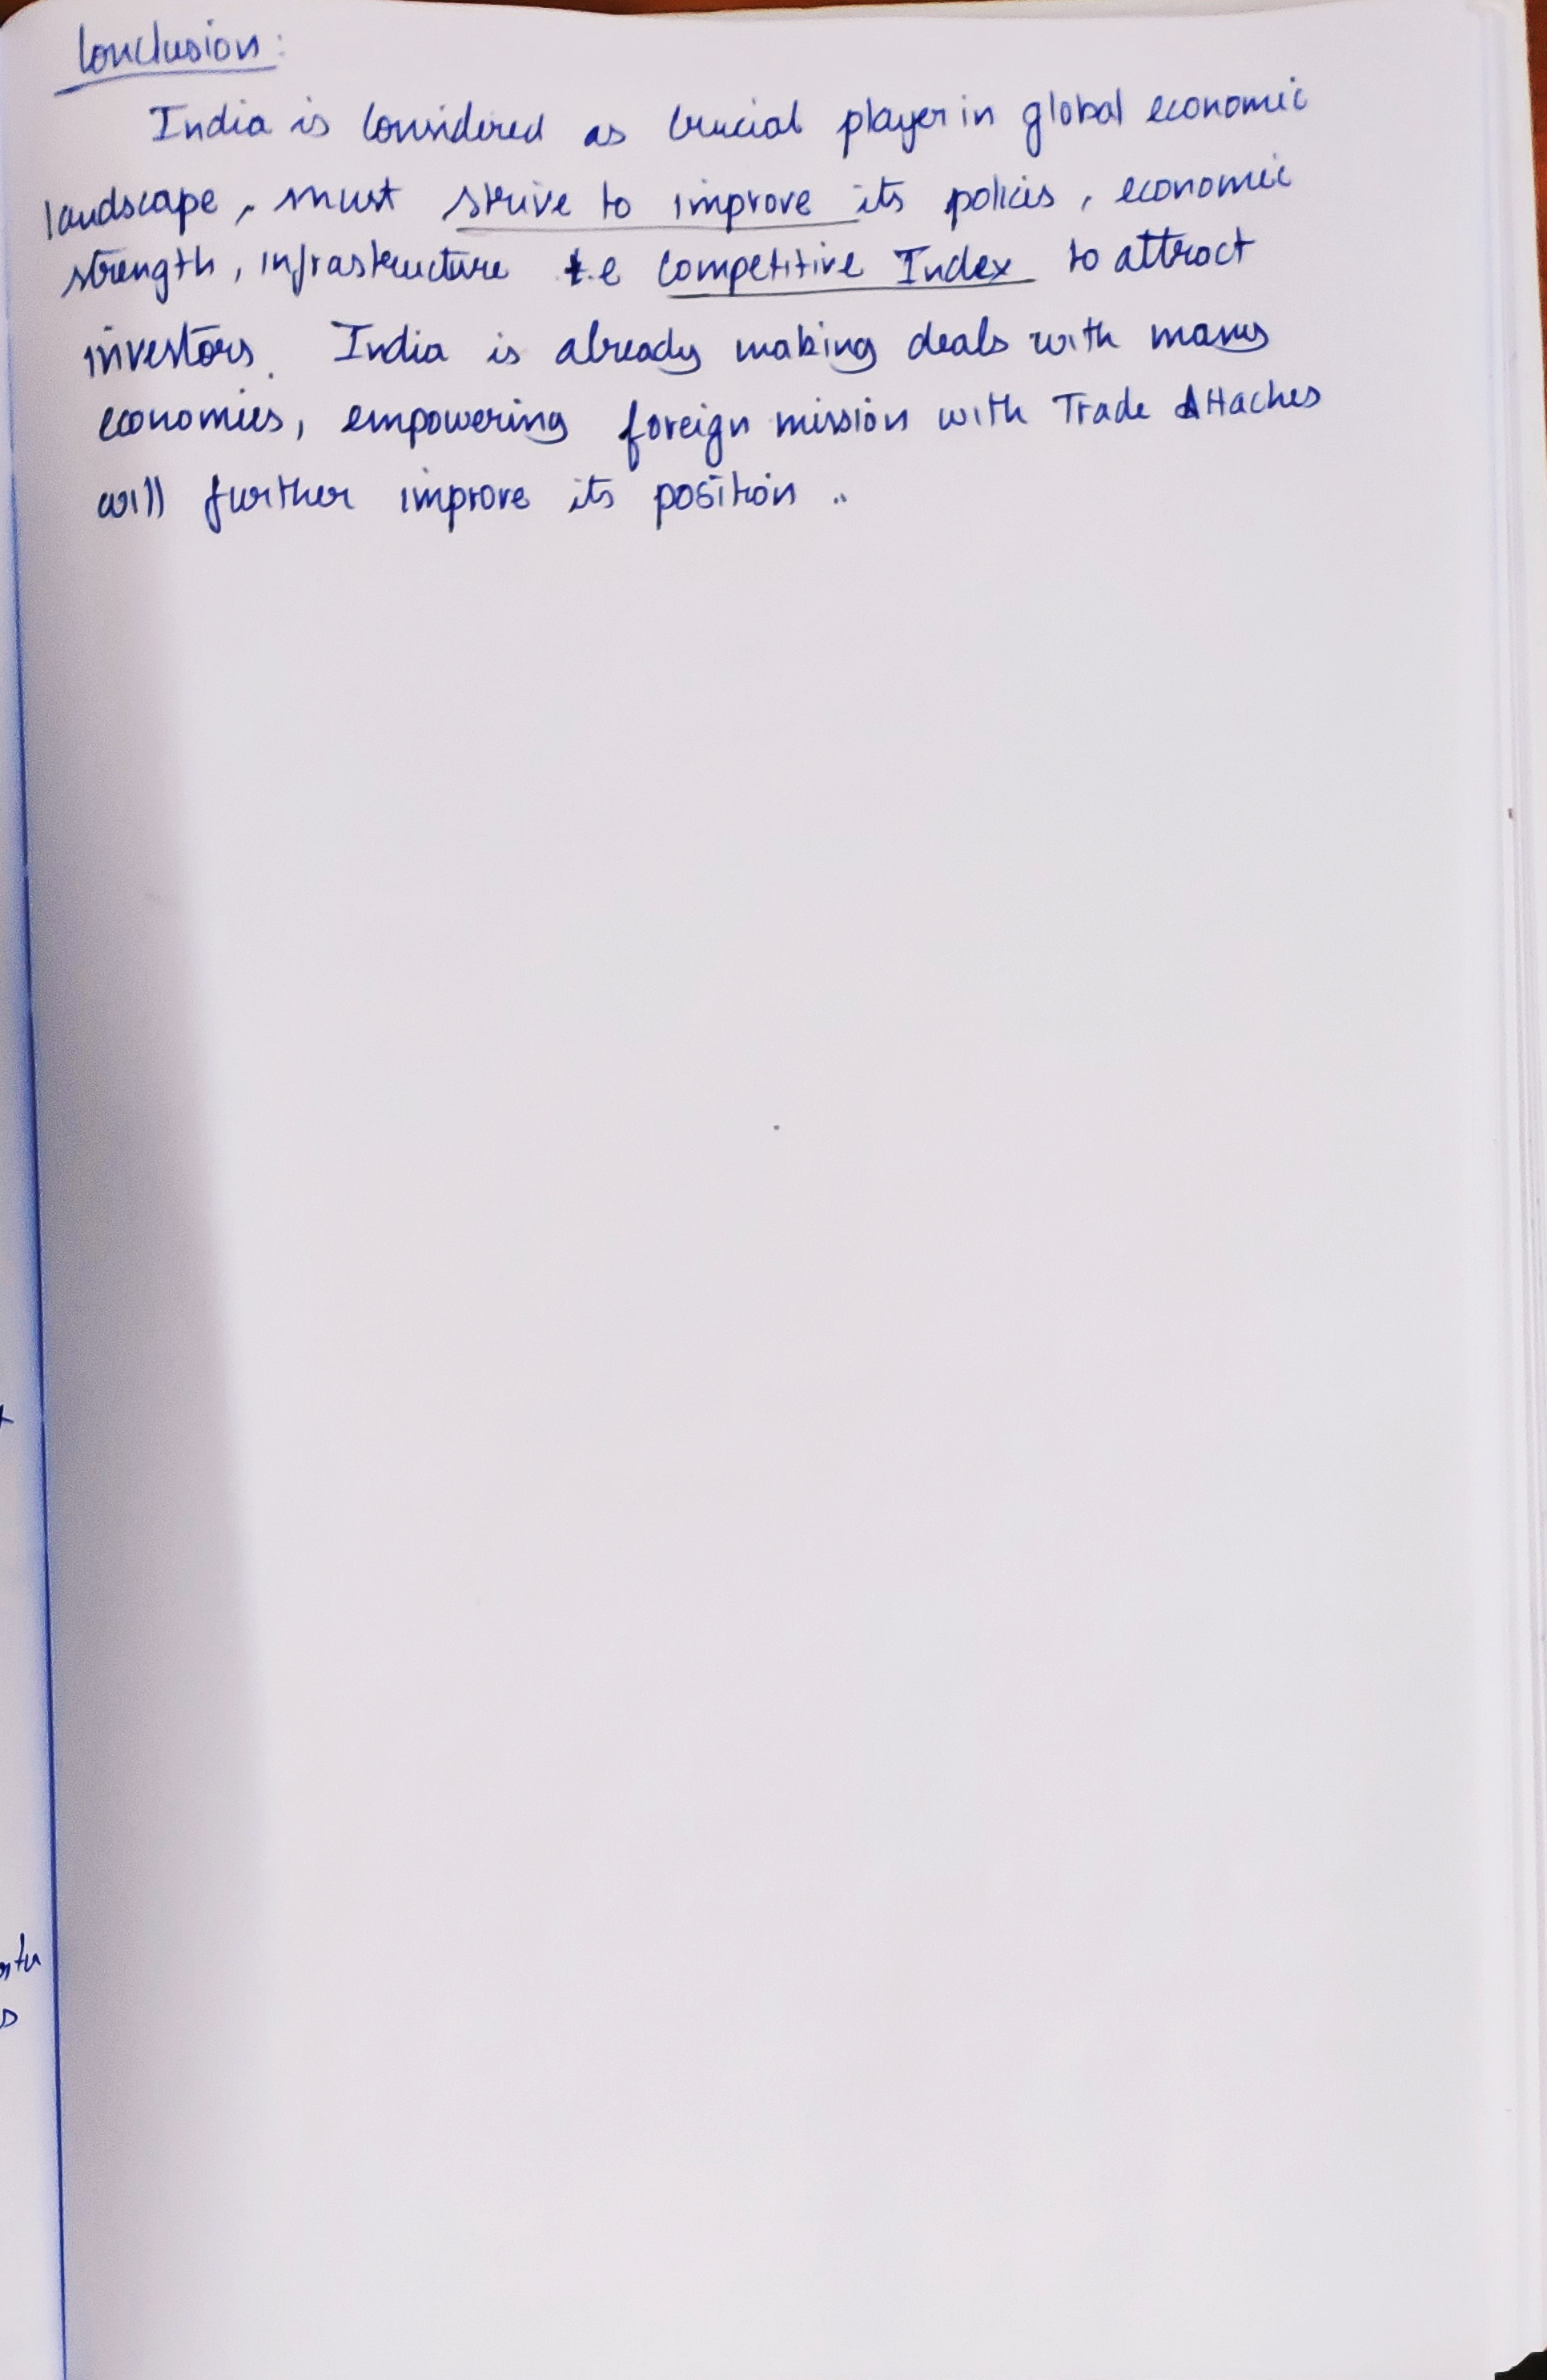 Conclusion:
India is considered as crucial player in global economic
landscape, must strive to improve its policis, economic
strength, infrastructure & competitive Index to attract
investors. India is already making deals with many
economies, empowering foreign mission with Trade Attaches
will further improve its position ..